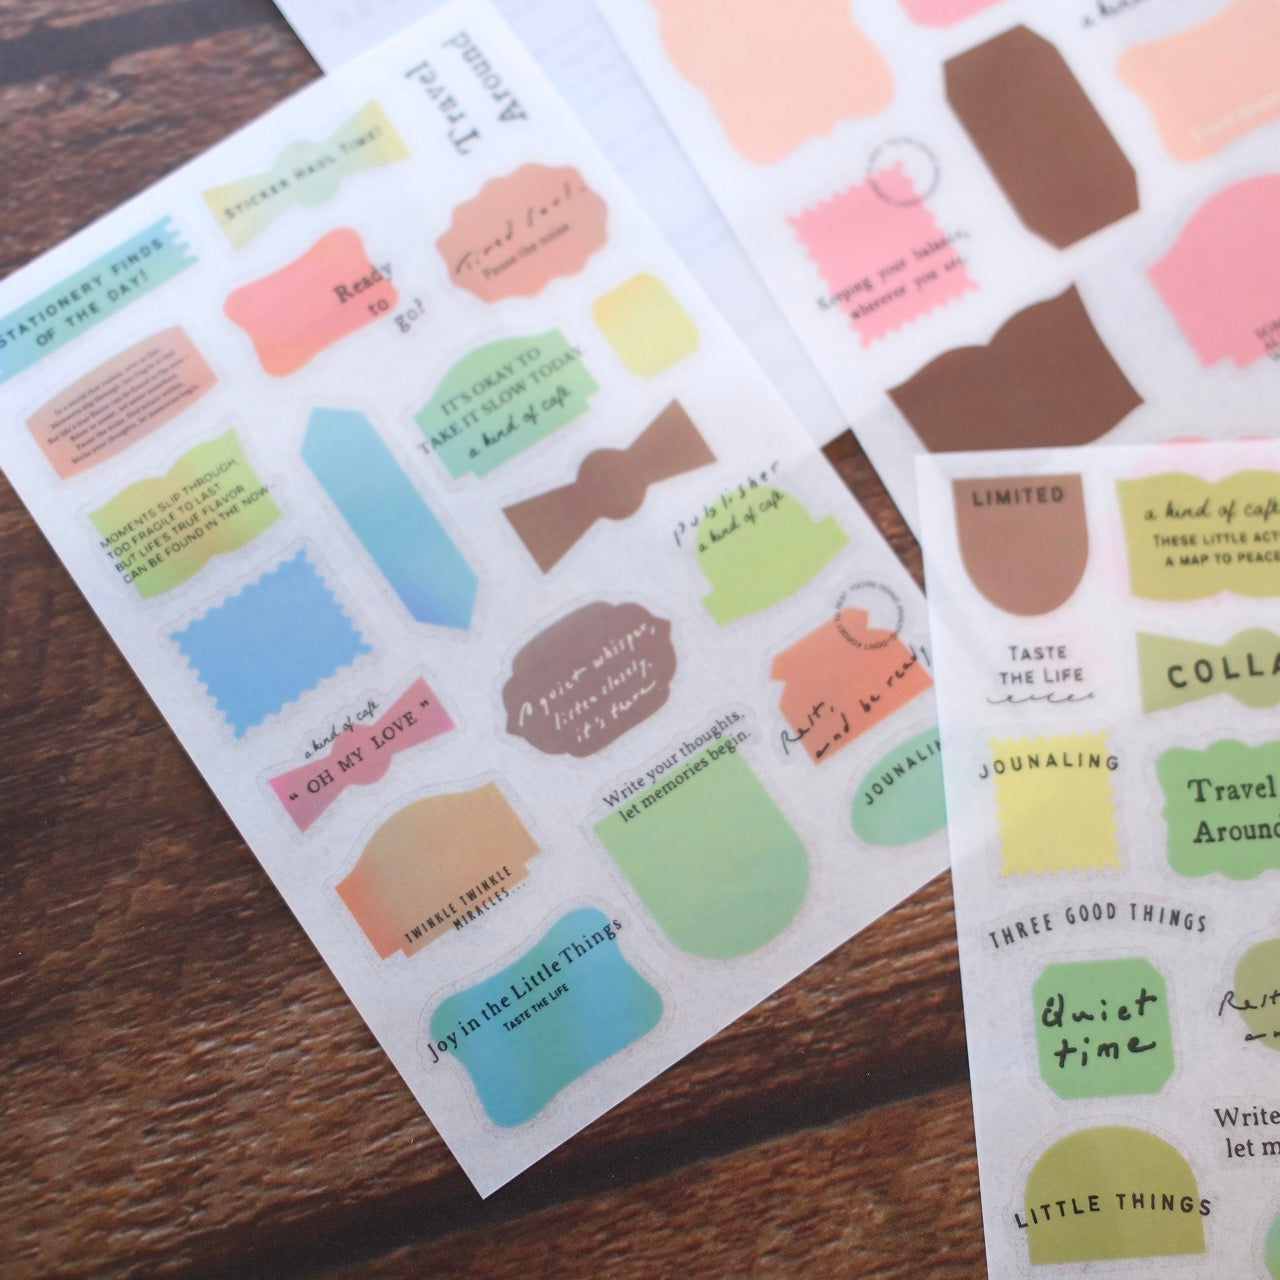 Travel
Around
STICKER HAUL TIME!
STATIONERY FINDS
OF THE DAY!
Ready
to
go!
Tired Soul.
Pause the noise
IT'S OKAY TO
TAKE IT SLOW TODAY.
a kind of café
MOMENTS SLIP THROUGH,
TOO FRAGILE TO LAST.
BUT LIFE'S TRUE FLAVOR
CAN BE FOUND IN THE NOW—
publisher
a kind of café
A quiet whisper,
listen closely,
it's there.
Rest,
and be ready
a kind of café
“ OH MY LOVE ”
Write your thoughts,
let memories begin.
JOUNALIN
TWINKLE TWINKLE
MIRACLES...
Joy in the Little Things
TASTE THE LIFE
Keeping your balance,
wherever you are.
LIMITED
a kind of café
THESE LITTLE ACT
A MAP TO PEACE
TASTE
THE LIFE
COLLA
JOUNALING
Travel
Around
THREE GOOD THINGS
Quiet
time
Rest
Write
let m
LITTLE THINGS